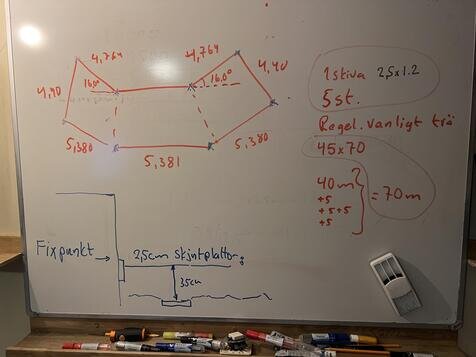 4,764
4,764
16,0°
16,0°
4,40
4,40
5,380
5,381
5,380
1 skiva 2,5x1.2
5st.
Regel. vanligt trä
45x70
40m
+5
+5+5
+5
= 70m
Fixpunkt
2,5cm skintplattor:
35cm